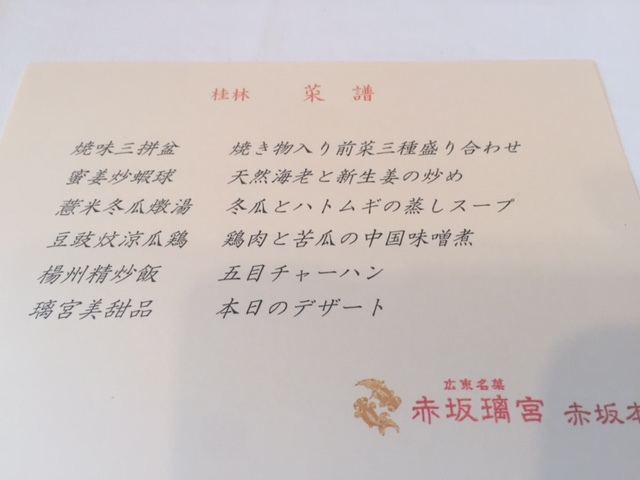 桂林 菜譜
焼味三拼盆 焼き物入り前菜三種盛り合わせ
蜜姜炒蝦球 天然海老と新生姜の炒め
薏米冬瓜燉湯 冬瓜とハトムギの蒸しスープ
豆豉炆涼瓜鶏 鶏肉と苦瓜の中国味噌煮
楊州精炒飯 五目チャーハン
璃宮美甜品 本日のデザート
広東名菜
赤坂璃宮 赤坂本